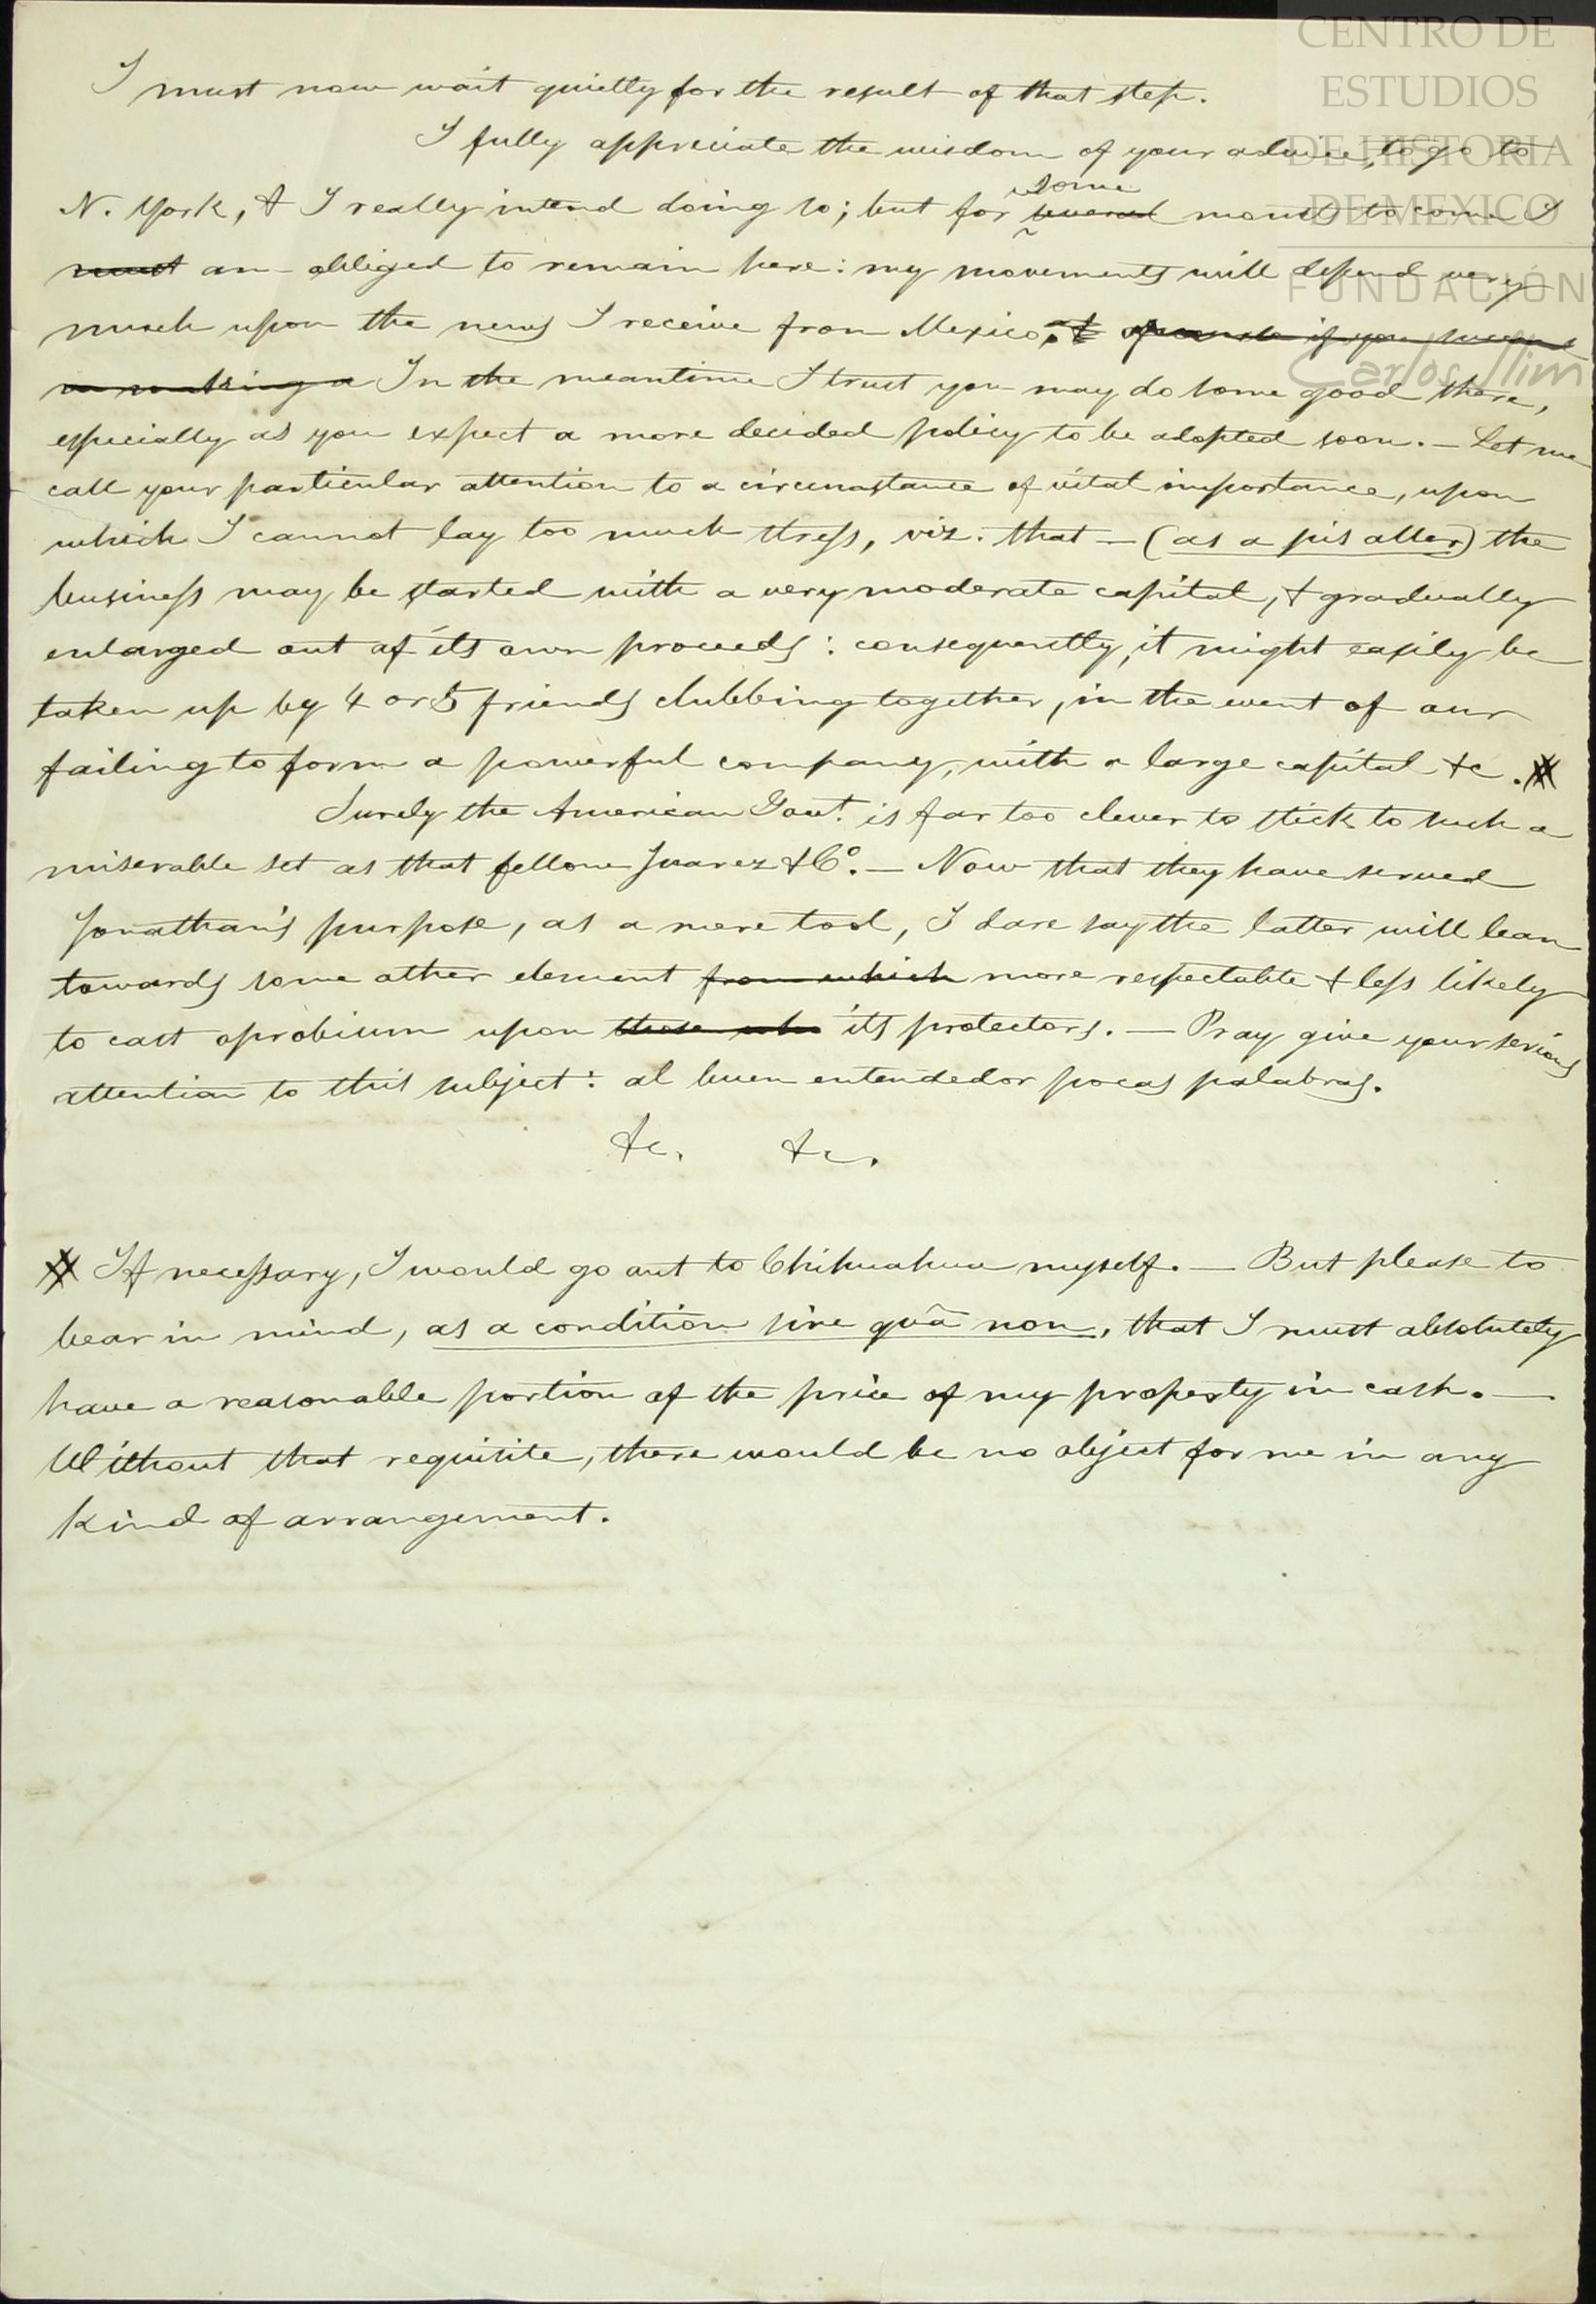 CENTRO DE
ESTUDIOS
DE HISTORIA
DE MEXICO
FUNDACIÓN
Carlos Slim
I must now wait quietly for the result of that step.
I fully appreciate the wisdom of your advice, to go to
some
N. York, & I really intend doing so; but for several months to come I
must am obliged to remain here: my movements will depend very
much upon the news I receive from Mexico. & of course if you succeed
in making a In the meantime I trust you may do some good there,
especially as you expect a more decided policy to be adopted soon. — Let me
call your particular attention to a circumstance of vital importance, upon
which I cannot lay too much stress, viz. that — (as a pis aller) the
business may be started with a very moderate capital, & gradually
enlarged out of its own proceeds: consequently, it might easily be
taken up by 4 or 5 friends clubbing together, in the event of our
failing to form a powerful company, with a large capital &c. #
Surely the American Govt. is far too clever to stick to such a
miserable set as that fellow Juarez & Co. — Now that they have served
Jonathan's purpose, as a mere tool, I dare say the latter will lean
towards some other element from which more respectable & less likely
to cast oprobium upon those who its protectors. — Pray give your serious
attention to this subject: al buen entendedor pocas palabras.
&c. &c.
# If necessary, I would go out to Chihuahua myself. — But please to
bear in mind, as a condition sine quâ non, that I must absolutely
have a reasonable portion of the price of my property in cash. —
Without that requisite, there would be no object for me in any
kind of arrangement.